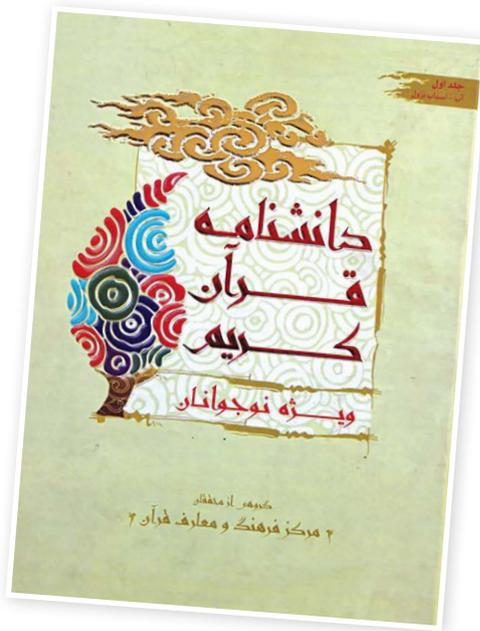 جلد اول
آب - اسباب نزول
دانشنامه
قرآن
کریم
ویژه نوجوانان
گروهی از محققان
مرکز فرهنگ و معارف قرآن